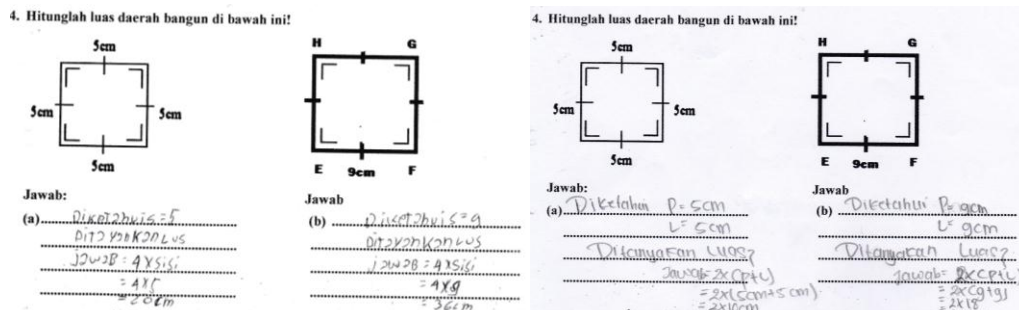 4. Hitunglah luas daerah bangun di bawah ini!
5cm
5cm
5cm
5cm
H
G
E
9cm
F
Jawab:
(a) Diketahui s = 5
Ditayankan Lus
Jawab = 4 x sisi
= 4 x 5
= 20cm
Jawab
(b) Diketahui s = 9
Ditayankan Lus
jawab = 4 x sisi
= 4x9
36cm
4. Hitunglah luas daerah bangun di bawah ini!
5cm
5cm
5cm
5cm
H
G
E
9cm
F
Jawab:
(a) Diketahui P = 5cm
L = 5cm
Ditanyakan Luas?
Jawab = 2x(p+L)
= 2x(5cm+5cm)
= 2x10cm
Jawab
(b) Diketahui P = 9cm
L = 9cm
Ditanyakan Luas?
Jawab = 2x(p+L)
= 2x(9+9)
= 2x18